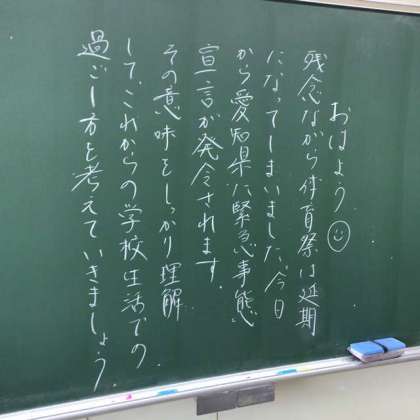 おはよう☺
残念ながら体育祭は延期
になってしまいました。今日
から愛知県に緊急事態
宣言が発令されます。
その意味をしっかり理解
して、これからの学校生活での
過ごし方を考えていきましょう。